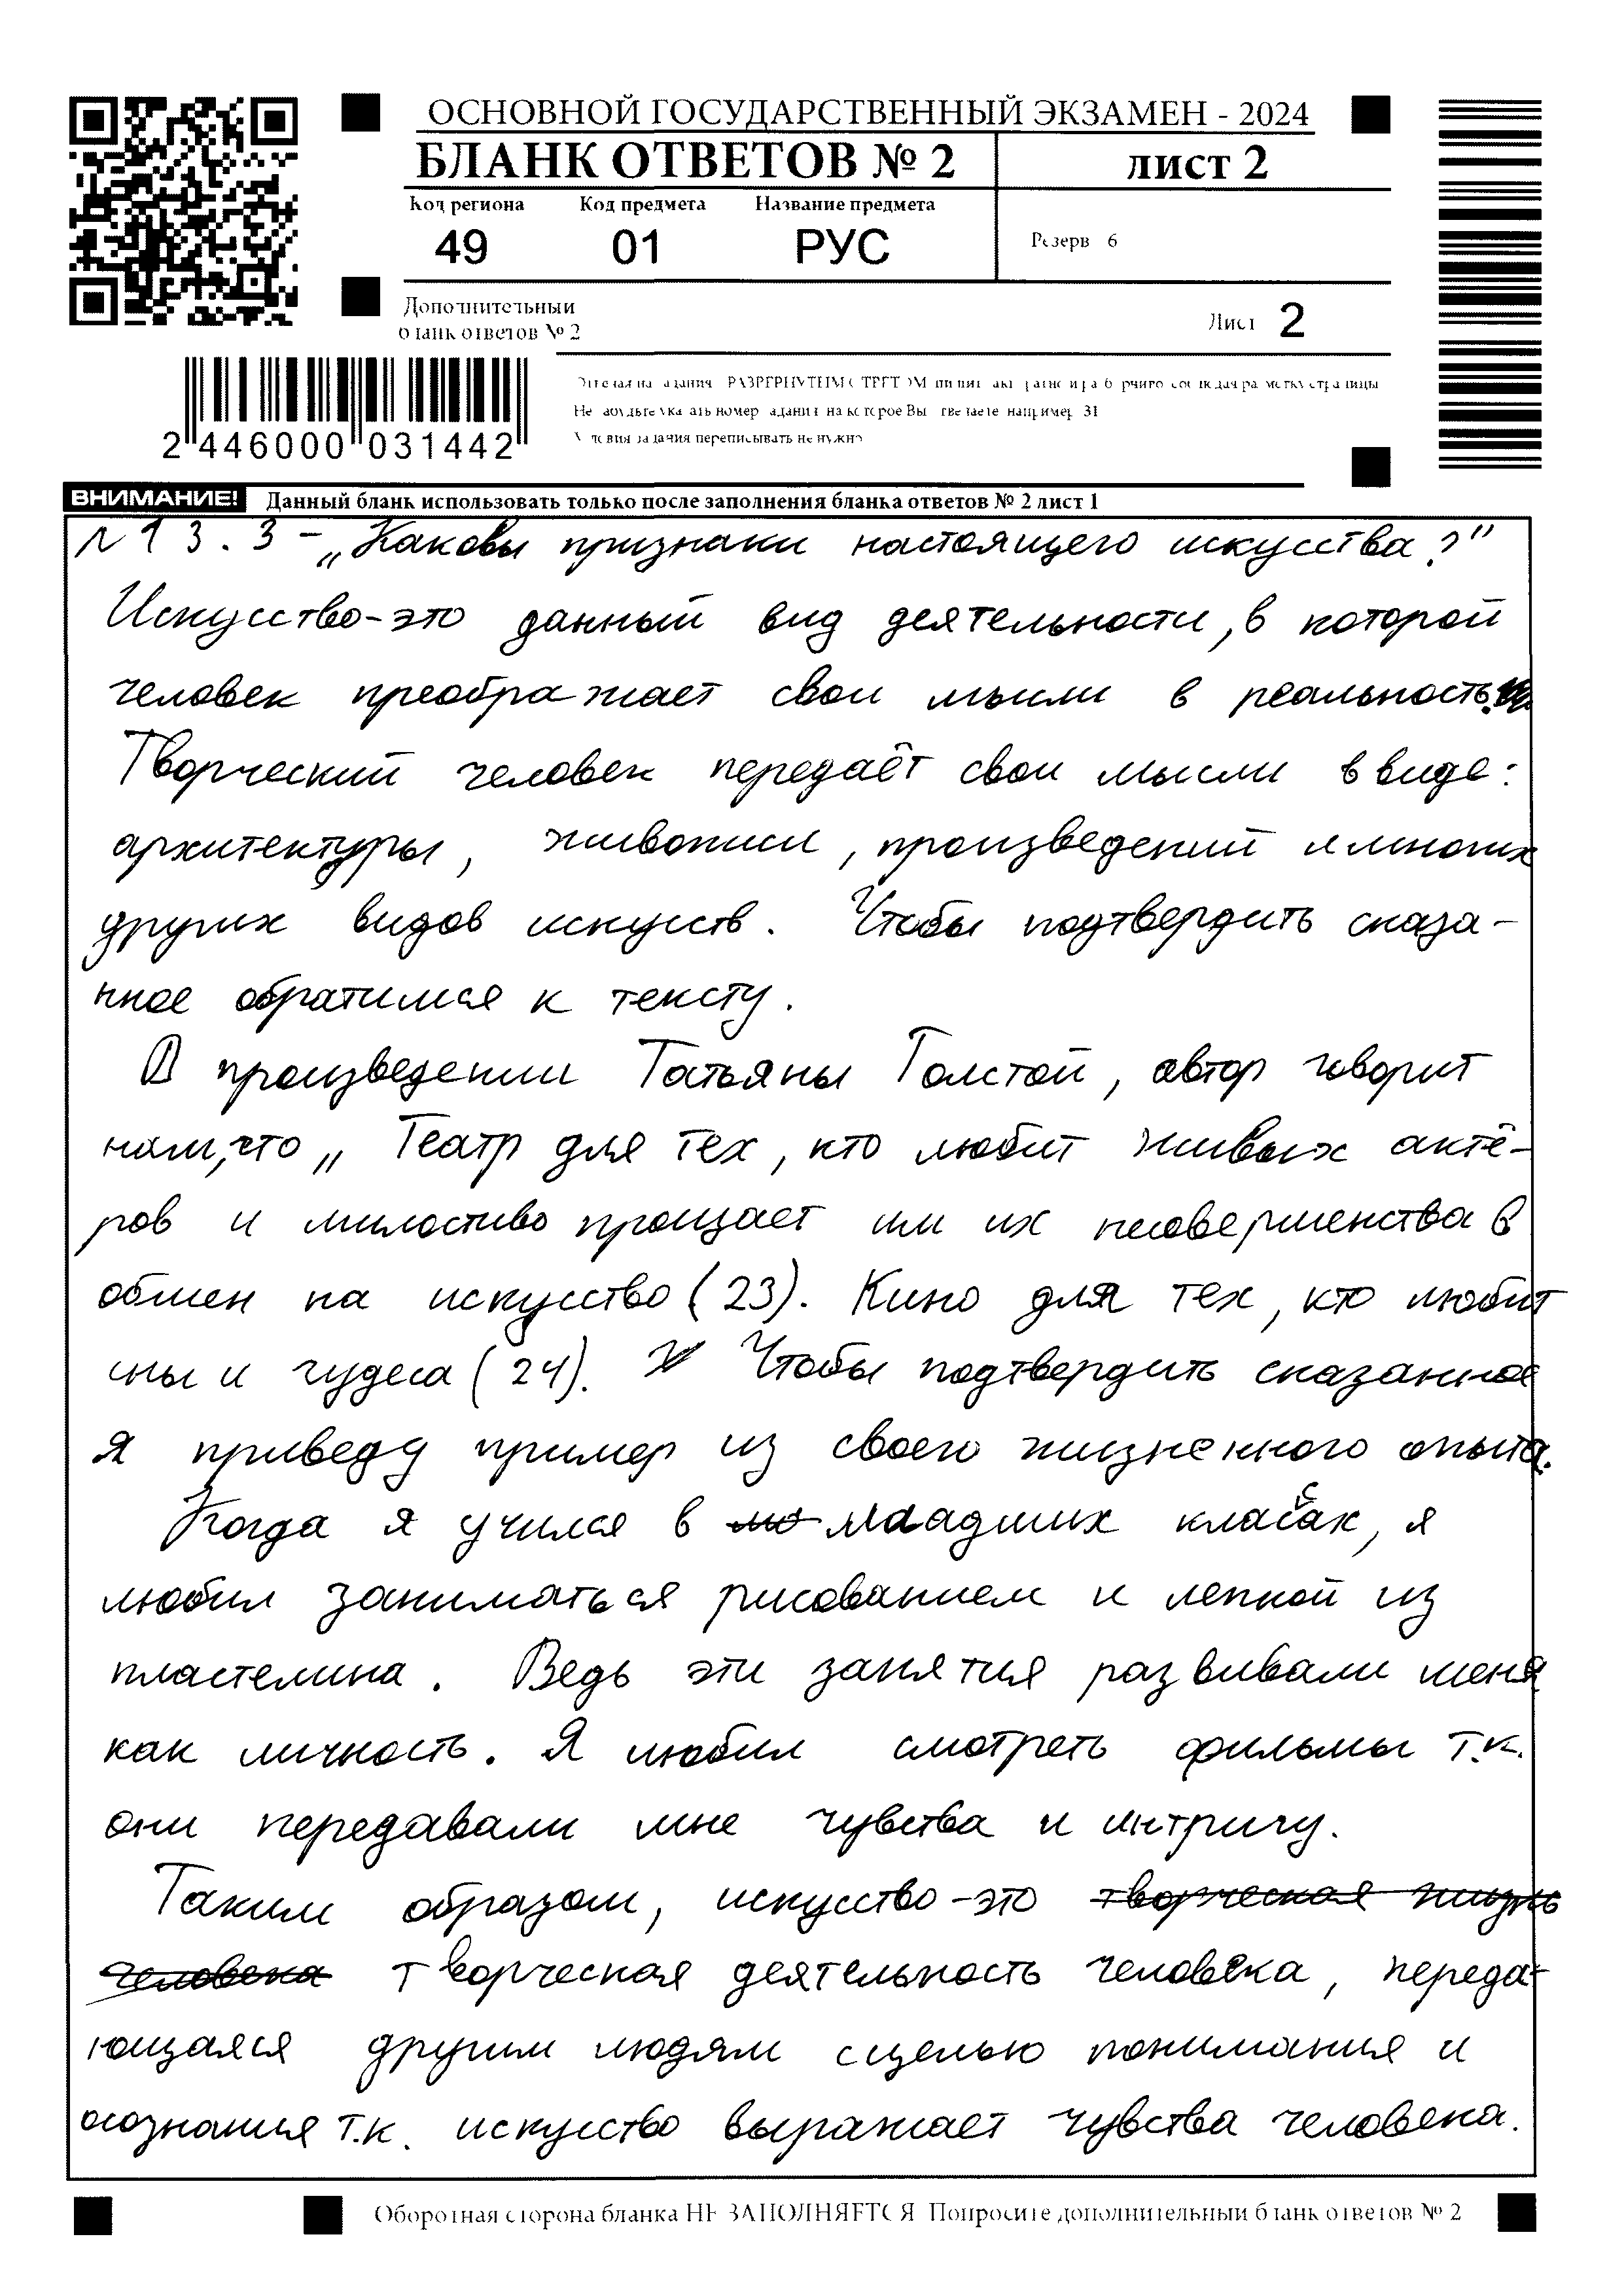 ОСНОВНОЙ ГОСУДАРСТВЕННЫЙ ЭКЗАМЕН - 2024
БЛАНК ОТВЕТОВ № 2
ЛИСТ 2
Код региона Код предмета Название предмета
49 01 РУС
Резерв 6
Дополнительный
бланк ответов № 2
Лист 2
2 446000 031442
Условия задания переписывать не нужно
ВНИМАНИЕ! Данный бланк использовать только после заполнения бланка ответов № 2 лист 1
№13.3 - „Каковы признаки настоящего искусства?"
Искусство-это данный вид деятельности, в которой
человек преображает свои мысли в реальность.
Творческий человек передаёт свои мысли в виде:
архитектуры, живописи, произведений и многих
других видов искусств. Чтобы подтвердить сказа-
нное обратимся к тексту.
В произведении Татьяны Толстой, автор говорит
нам, что „ Театр для тех, кто любит живых актё-
ров и милостиво прощает им их несовершенства в
обмен на искусство (23). Кино для тех, кто любит
сны и чудеса (24). Чтобы подтвердить сказанное
я приведу пример из своего жизненного опыта.
Когда я учился в мо младших классак, я
любил заниматься рисованием и лепкой из
пластелина. Ведь эти занятия развивали меня
как личность. Я любил смотреть фильмы т.к.
они передавали мне чувства и интригу.
Таким образом, искусство-это творческая жизнь
человека творческая деятельность человека, переда-
ющаяся другим людям сцелью понимания и
осознания т.к. искусство выражает чувства человека.
Оборотная сторона бланка НЕ ЗАПОЛНЯЕТСЯ. Попросите дополнительный бланк ответов № 2